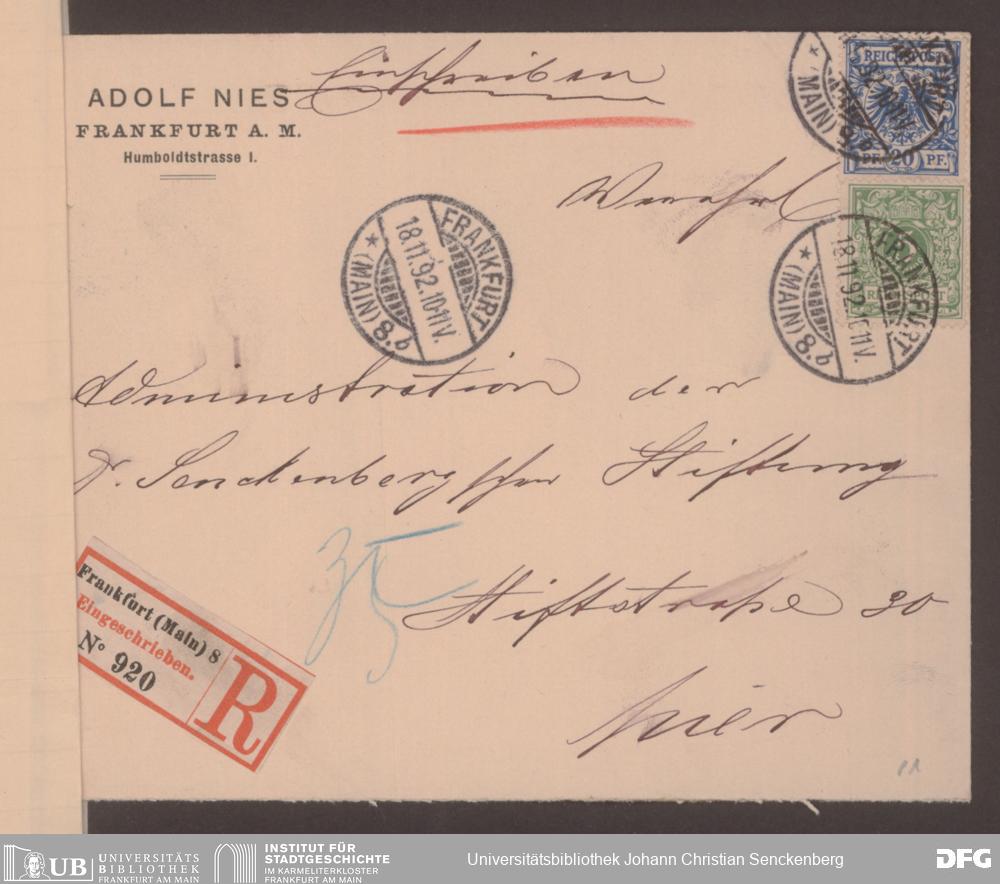 Einschreiben
ADOLF NIES
FRANKFURT A. M.
Humboldtstrasse 1.
REICHSPOST
PF. 20 PF.
FRANKFURT
18.11.92.10-11V.
* (MAIN) 8. b
FRANKFURT
18.11.92.10-11V.
* (MAIN) 8. b
Administration der
Dr. Senckenberg'schen Stiftung
35
Stiftstraße 30
hier
Frankfurt (Main) 8
Eingeschrieben.
No 920
R
UB UNIVERSITÄTS
BIBLIOTHEK
FRANKFURT AM MAIN
INSTITUT FÜR
STADTGESCHICHTE
IM KARMELITERKLOSTER
FRANKFURT AM MAIN
Universitätsbibliothek Johann Christian Senckenberg
DFG